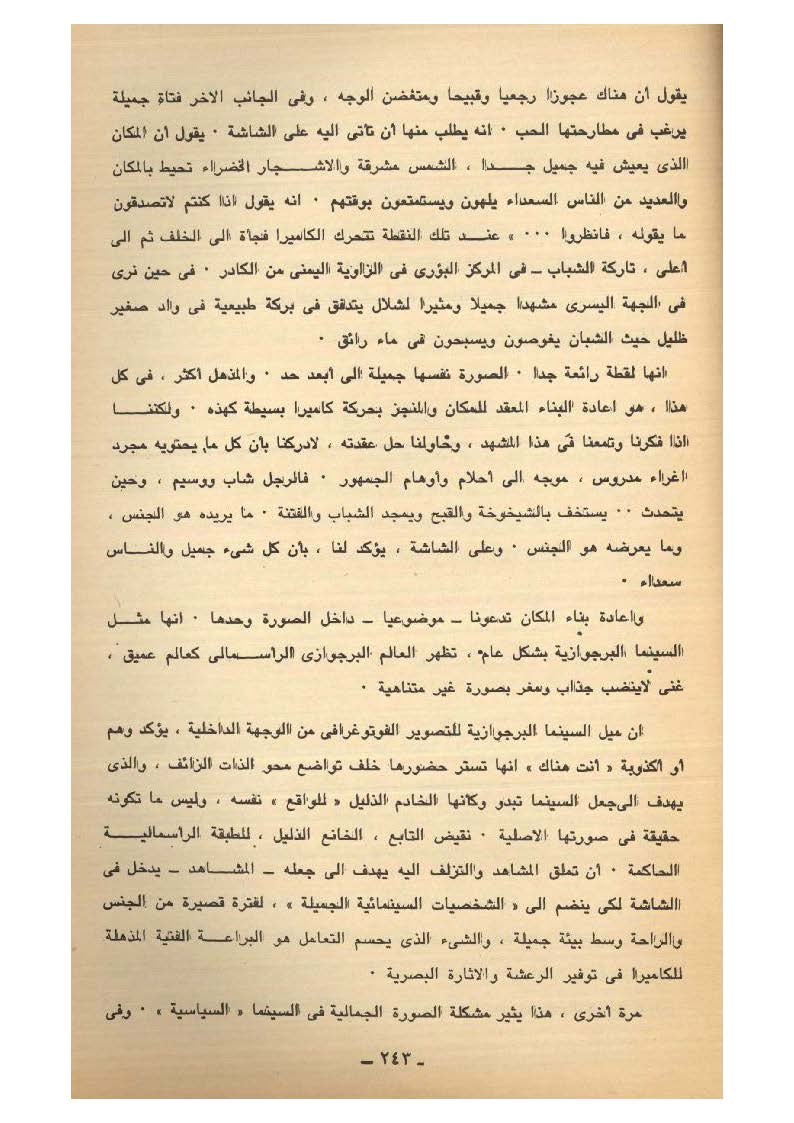 يقول أن هناك عجوزا رجعيا وقبيحا ومتغضن الوجه ، وفى الجانب الاخر فتاة جميلة
يرغب فى مطارحتها الحب ٠ انه يطلب منها أن تأتى اليه على الشاشة ٠ يقول أن المكان
الذى يعيش فيه جميل جــــدا ، الشمس مشرقة والاشــــجار الخضراء تحيط بالمكان
والعديد من الناس السعداء يلهون ويستمتعون بوقتهم ٠ انه يقول اذا كنتم لاتصدقون
ما يقوله ، فانظروا ٠٠٠ » عنـــد تلك النقطة تتحرك الكاميرا فجأة الى الخلف ثم الى
أعلى ، تاركة الشباب ـ فى المركز البؤرى فى الزاوية اليمنى من الكادر ٠ فى حين نرى
فى الجهة اليسرى مشهدا جميلا ومثيرا لشلال يتدفق فى بركة طبيعية فى واد صغير
ظليل حيث الشبان يغوصون ويسبحون فى ماء رائق ٠
انها لقطة رائعة جدا ٠ الصورة نفسها جميلة الى أبعد حد ٠ والمذهل أكثر ، فى كل
هذا ، هو اعادة البناء المعقد للمكان والمنجز بحركة كاميرا بسيطة كهذه ٠ ولكننـــا
اذا فكرنا وتمعنا فى هذا المشهد ، وحاولنا حل عقدته ، لادركنا بأن كل ما يحتويه مجرد
اغراء مدروس ، موجه الى أحلام وأوهام الجمهور ٠ فالرجل شاب ووسيم ، وحين
يتحدث ٠٠ يستخف بالشيخوخة والقبح ويمجد الشباب والفتنة ٠ ما يريده هو الجنس ،
وما يعرضه هو الجنس ٠ وعلى الشاشة ، يؤكد لنا ، بأن كل شىء جميل والنـــاس
سعداء ٠
واعادة بناء المكان تدعونا ـ موضوعيا ـ داخل الصورة وحدها ٠ انها مثـــل
السينما البرجوازية بشكل عام ، تظهر العالم البرجوازى الرأســـمالى كعالم عميق ،
غنى لاينضب جذاب ومغر بصورة غير متناهية ٠
ان ميل السينما البرجوازية للتصوير الفوتوغرافى من الوجهة الداخلية ، يؤكد وهم
أو أكذوبة « أنت هناك » انها تستر حضورها خلف تواضع محو الذات الزائف ، والذى
يهدف الى جعل السينما تبدو وكأنها الخادم الذليل « للواقع » نفسه ، وليس ما تكونه
حقيقة فى صورتها الاصلية ٠ نقيض التابع ، الخانع الذليل ، للطبقة الرأسماليـــة
الحاكمة ٠ أن تملق المشاهد والتزلف اليه يهدف الى جعله ـ المشـــاهد ـ يدخل فى
الشاشة لكى ينضم الى « الشخصيات السينمائية الجميلة » ، لفترة قصيرة من الجنس
والراحة وسط بيئة جميلة ، والشىء الذى يحسم التعامل هو البراعـــة الفنية المذهلة
للكاميرا فى توفير الرعشة والاثارة البصرية ٠
مرة أخرى ، هذا يثير مشكلة الصورة الجمالية فى السينما « السياسية » ٠ وفى
ـ ٢٤٣ ـ